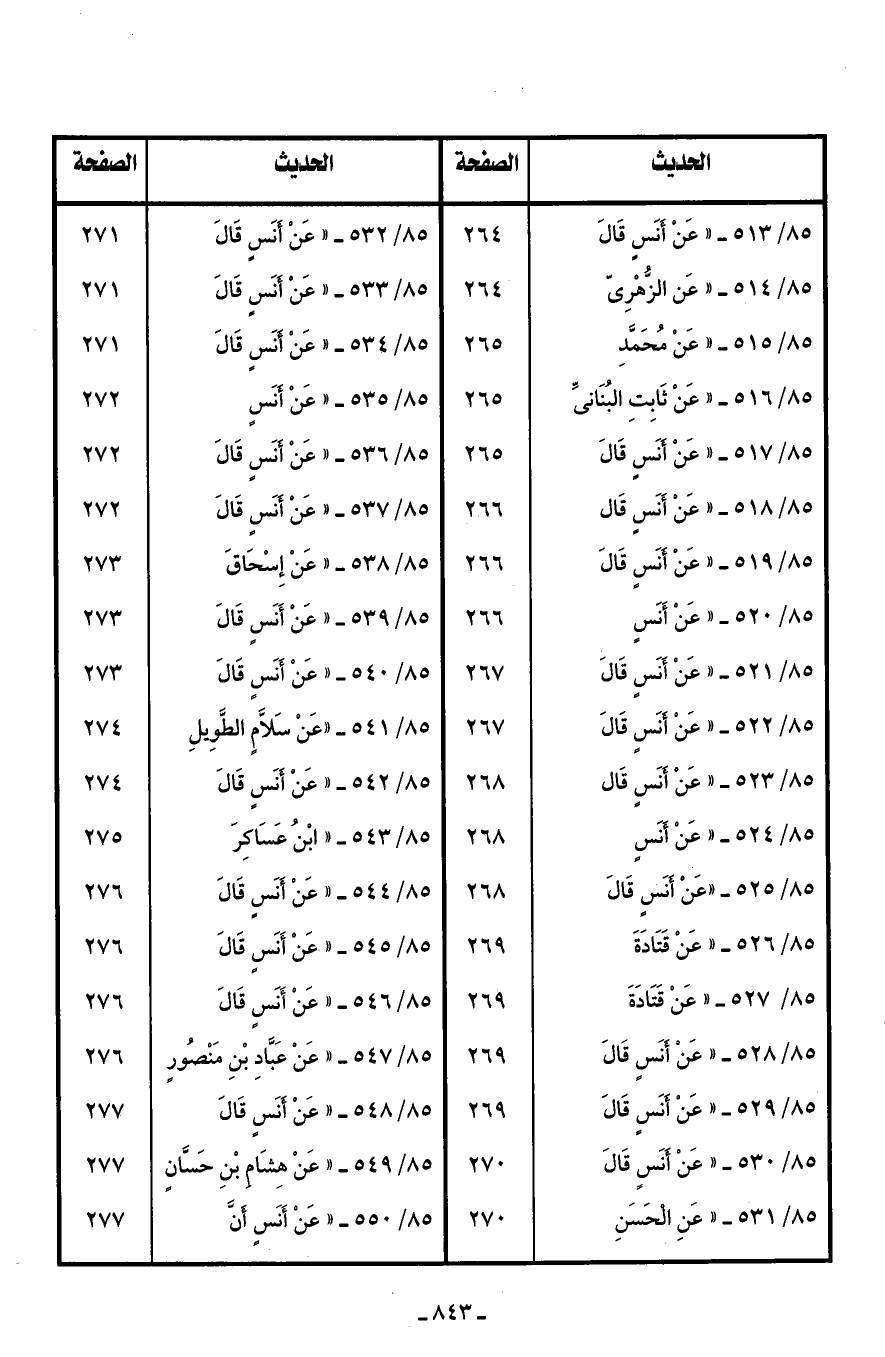 الحديث الصفحة الحديث الصفحة
٨٥/ ٥١٣ ـ « عَنْ أَنَسٍ قَالَ ٢٦٤ ٨٥/ ٥٣٢ ـ « عَنْ أَنَسٍ قَالَ ٢٧١
٨٥/ ٥١٤ ـ « عَن الزُّهْرِىّ ٢٦٤ ٨٥/ ٥٣٣ ـ « عَنْ أَنَسٍ قَالَ ٢٧١
٨٥/ ٥١٥ ـ « عَنْ مُحَمَّدِ ٢٦٥ ٨٥/ ٥٣٤ ـ « عَنْ أَنَسٍ قَالَ ٢٧١
٨٥/ ٥١٦ ـ « عَنْ ثَابِتِ البُنَانىِّ ٢٦٥ ٨٥/ ٥٣٥ ـ « عَنْ أَنَسٍ ٢٧٢
٨٥/ ٥١٧ ـ « عَنْ أَنَسٍ قَالَ ٢٦٥ ٨٥/ ٥٣٦ ـ « عَنْ أَنَسٍ قَالَ ٢٧٢
٨٥/ ٥١٨ ـ « عَنْ أَنَسٍ قَال ٢٦٦ ٨٥/ ٥٣٧ ـ « عَنْ أَنَسٍ قَالَ ٢٧٢
٨٥/ ٥١٩ ـ « عَنْ أَنَسٍ قَالَ ٢٦٦ ٨٥/ ٥٣٨ ـ « عَنْ إِسْحَاقَ ٢٧٣
٨٥/ ٥٢٠ ـ « عَنْ أَنَسٍ ٢٦٦ ٨٥/ ٥٣٩ ـ « عَنْ أَنَسٍ قَالَ ٢٧٣
٨٥/ ٥٢١ ـ « عَنْ أَنَسٍ قَالَ ٢٦٧ ٨٥/ ٥٤٠ ـ « عَنْ أَنَسٍ قَالَ ٢٧٣
٨٥/ ٥٢٢ ـ « عَنْ أَنَسٍ قَالَ ٢٦٧ ٨٥/ ٥٤١ ـ «عَنْ سَلاَّمٍ الطَّوِيلِ ٢٧٤
٨٥/ ٥٢٣ ـ « عَنْ أَنَسٍ قَال ٢٦٨ ٨٥/ ٥٤٢ ـ « عَنْ أَنَسٍ قَالَ ٢٧٤
٨٥/ ٥٢٤ ـ « عَنْ أَنَسٍ ٢٦٨ ٨٥/ ٥٤٣ ـ « ابْنُ عَسَاكِرَ ٢٧٥
٨٥/ ٥٢٥ ـ «عَنْ أَنَسٍ قَالَ ٢٦٨ ٨٥/ ٥٤٤ ـ « عَنْ أَنَسٍ قَالَ ٢٧٦
٨٥/ ٥٢٦ ـ « عَنْ قَتَادَةَ ٢٦٩ ٨٥/ ٥٤٥ ـ « عَنْ أَنَسٍ قَالَ ٢٧٦
٨٥/ ٥٢٧ ـ « عَنْ قَتَادَةَ ٢٦٩ ٨٥/ ٥٤٦ ـ « عَنْ أَنَسٍ قَالَ ٢٧٦
٨٥/ ٥٢٨ ـ « عَنْ أَنَسٍ قَالَ ٢٦٩ ٨٥/ ٥٤٧ ـ « عَنْ عَبَّادِ بْنِ مَنْصُورٍ ٢٧٦
٨٥/ ٥٢٩ ـ « عَنْ أَنَسٍ قَالَ ٢٦٩ ٨٥/ ٥٤٨ ـ « عَنْ أَنَسٍ قَالَ ٢٧٧
٨٥/ ٥٣٠ ـ « عَنْ أَنَسٍ قَالَ ٢٧٠ ٨٥/ ٥٤٩ ـ « عَنْ هِشَامِ بْنِ حَسَّانٍ ٢٧٧
٨٥/ ٥٣١ ـ « عَنِ الْحَسَنِ ٢٧٠ ٨٥/ ٥٥٠ ـ « عَنْ أَنَسٍ أَنَّ ٢٧٧
ـ ٨٤٣ ـ